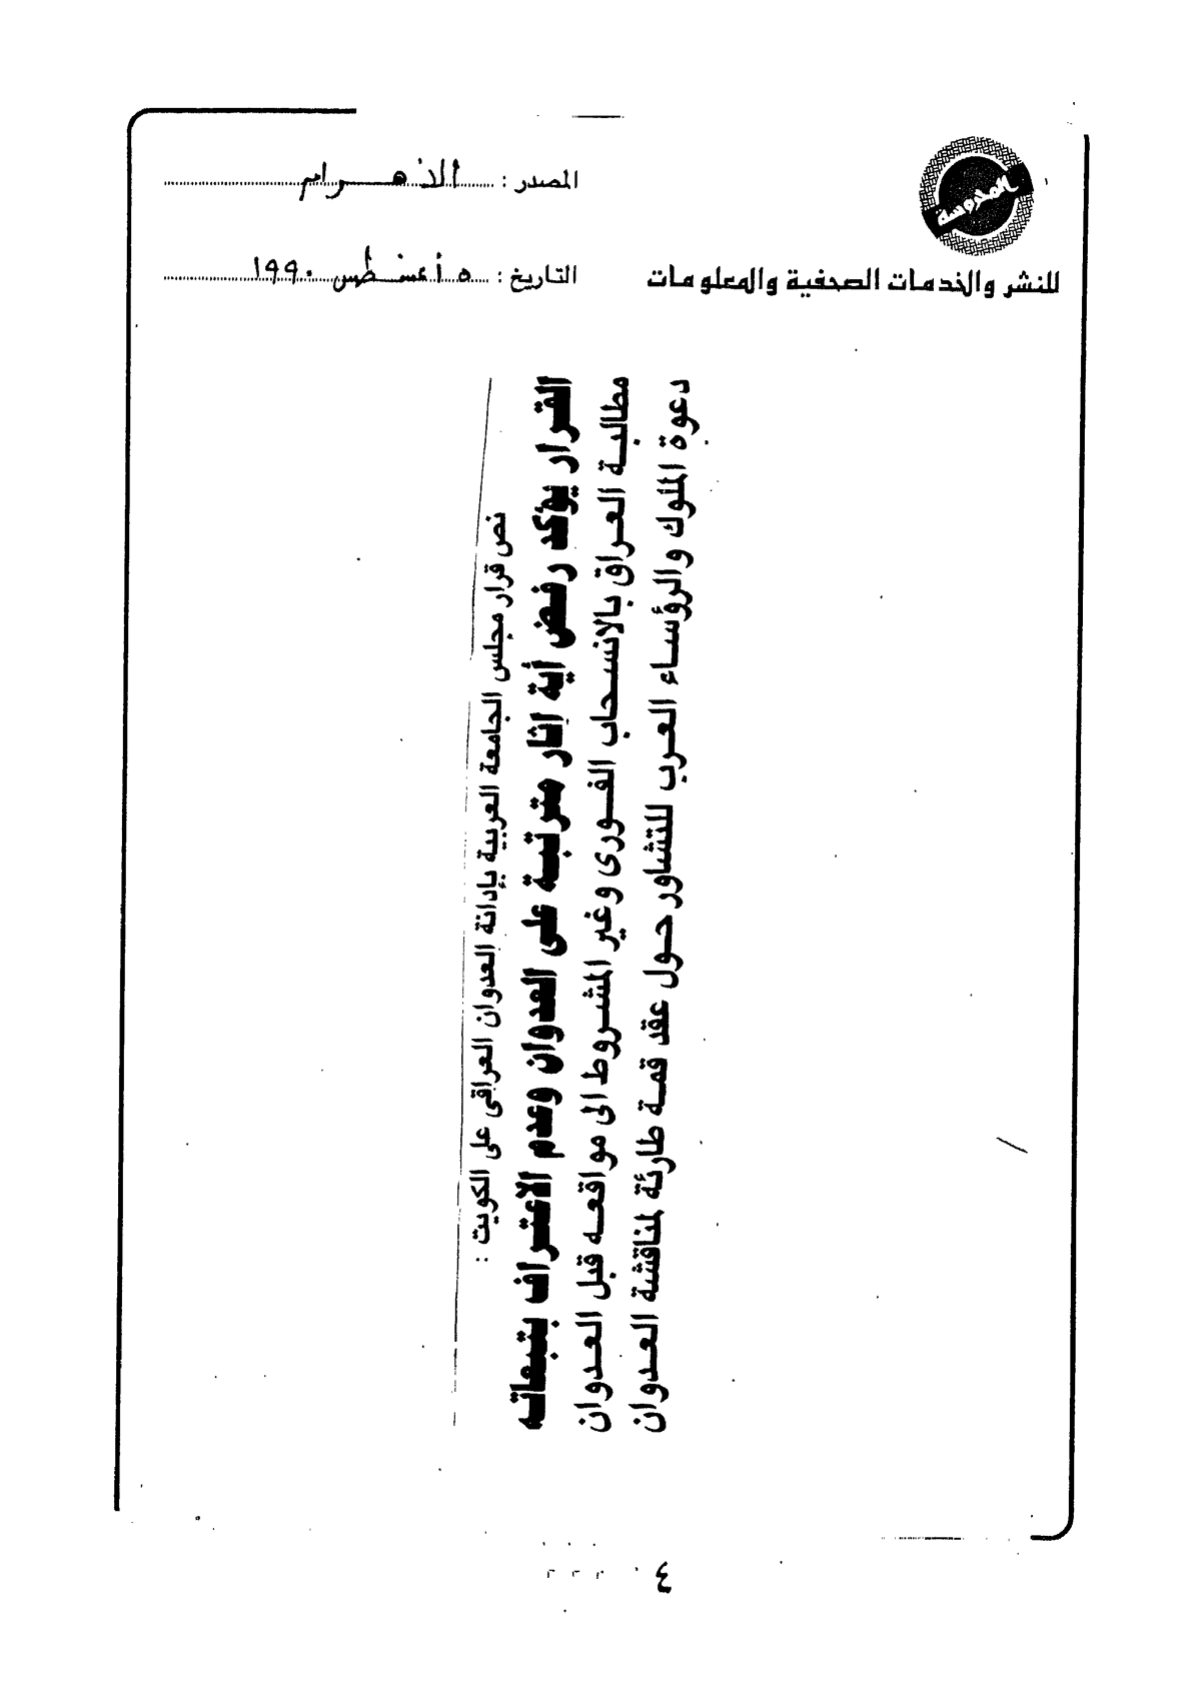 المحروسة
للنشر والخدمات الصحفية والمعلومات
المصدر : الأهرام
التاريخ : ٥ أغسطس ١٩٩٠
نص قرار مجلس الجامعة العربية بإدانة العدوان العراقى على الكويت :
القرار يؤكد رفض أية آثار مترتبة على العدوان وعدم الاعتراف بتبعاته
مطالبة العراق بالانسحاب الفورى وغير المشروط الى مواقعه قبل العدوان
دعوة الملوك والرؤساء العرب للتشاور حول عقد قمة طارئة لمناقشة العدوان
٤